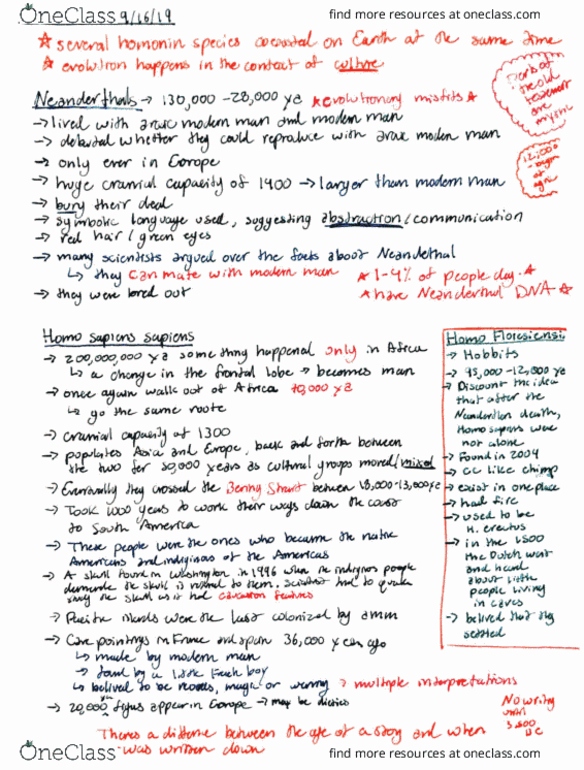 OneClass
9/16/19
find more resources at oneclass.com
★ several homonin species coexisted on Earth at the same time
★ evolution happens in the context of culture
Neanderthals → 130,000 - 28,000 ya ★ evolutionary misfits ★
→ lived with arxic modern man and modern man
→ debated whether they could reproduce with arxic modern man
→ only ever in Europe
→ huge cranial capacity of 1400 → larger than modern man
→ bury their dead
→ symbolic language used, suggesting abstraction/communication
→ red hair/green eyes
→ many scientists argued over the facts about Neandethal
↳ they can mate with modern man
★ 1-4% of people day ★
★ have Neanderthal DNA ★
→ they were bred out
Parts of the old testement are mystic
12,000
Homo sapiens sapiens
→ 200,000,000 ya something happened only in Africa
↳ a change in the frontal lobe → becomes man
→ once again walk out of Africa 70,000 ya
↳ go the same route
→ cranial capacity of 1300
→ populates Asia and Europe, back and forth between
the two for 30,000 years as cultural groups moved/mixed
→ Eventually they crossed the Bering Strait between 18,000-13,000 ya
→ Took 1000 years to work their ways down the coast
to South America
→ These people were the ones who became the native
Americans and indiginous of the Americas
→ A skull found in Washington in 1996 when the indignos people
demande the skull is retured to them. scientist had to
study the skull as it had caucasion features
→ Pacific islands were the last colonized by amm
→ Cave paintings in France and Spain 36,000 years ago
↳ made by modern man
→ found by a little French boy
↳ belived to be
magic or
→ multiple interpretations
→ 20,000
figus appear in Europe → may be
Homo Floresiensi
→ Hobbits
→ 95,000-12,000 ya
→ Discount the idea
that after the
Neanderthon death,
Homo sapiens were
not alone
→ Found in 2004
→ CC like chimp
→ exist in one place
→ had fire
→ used to be
H. erectus
→ in the 1500
the Dutch went
and heard
about little
people living
in caves
→ belived that they
settled
No writing
until
3,500
BC
Theres a differne between the age of a story and when
it was written down
OneClass
find more resources at oneclass.com